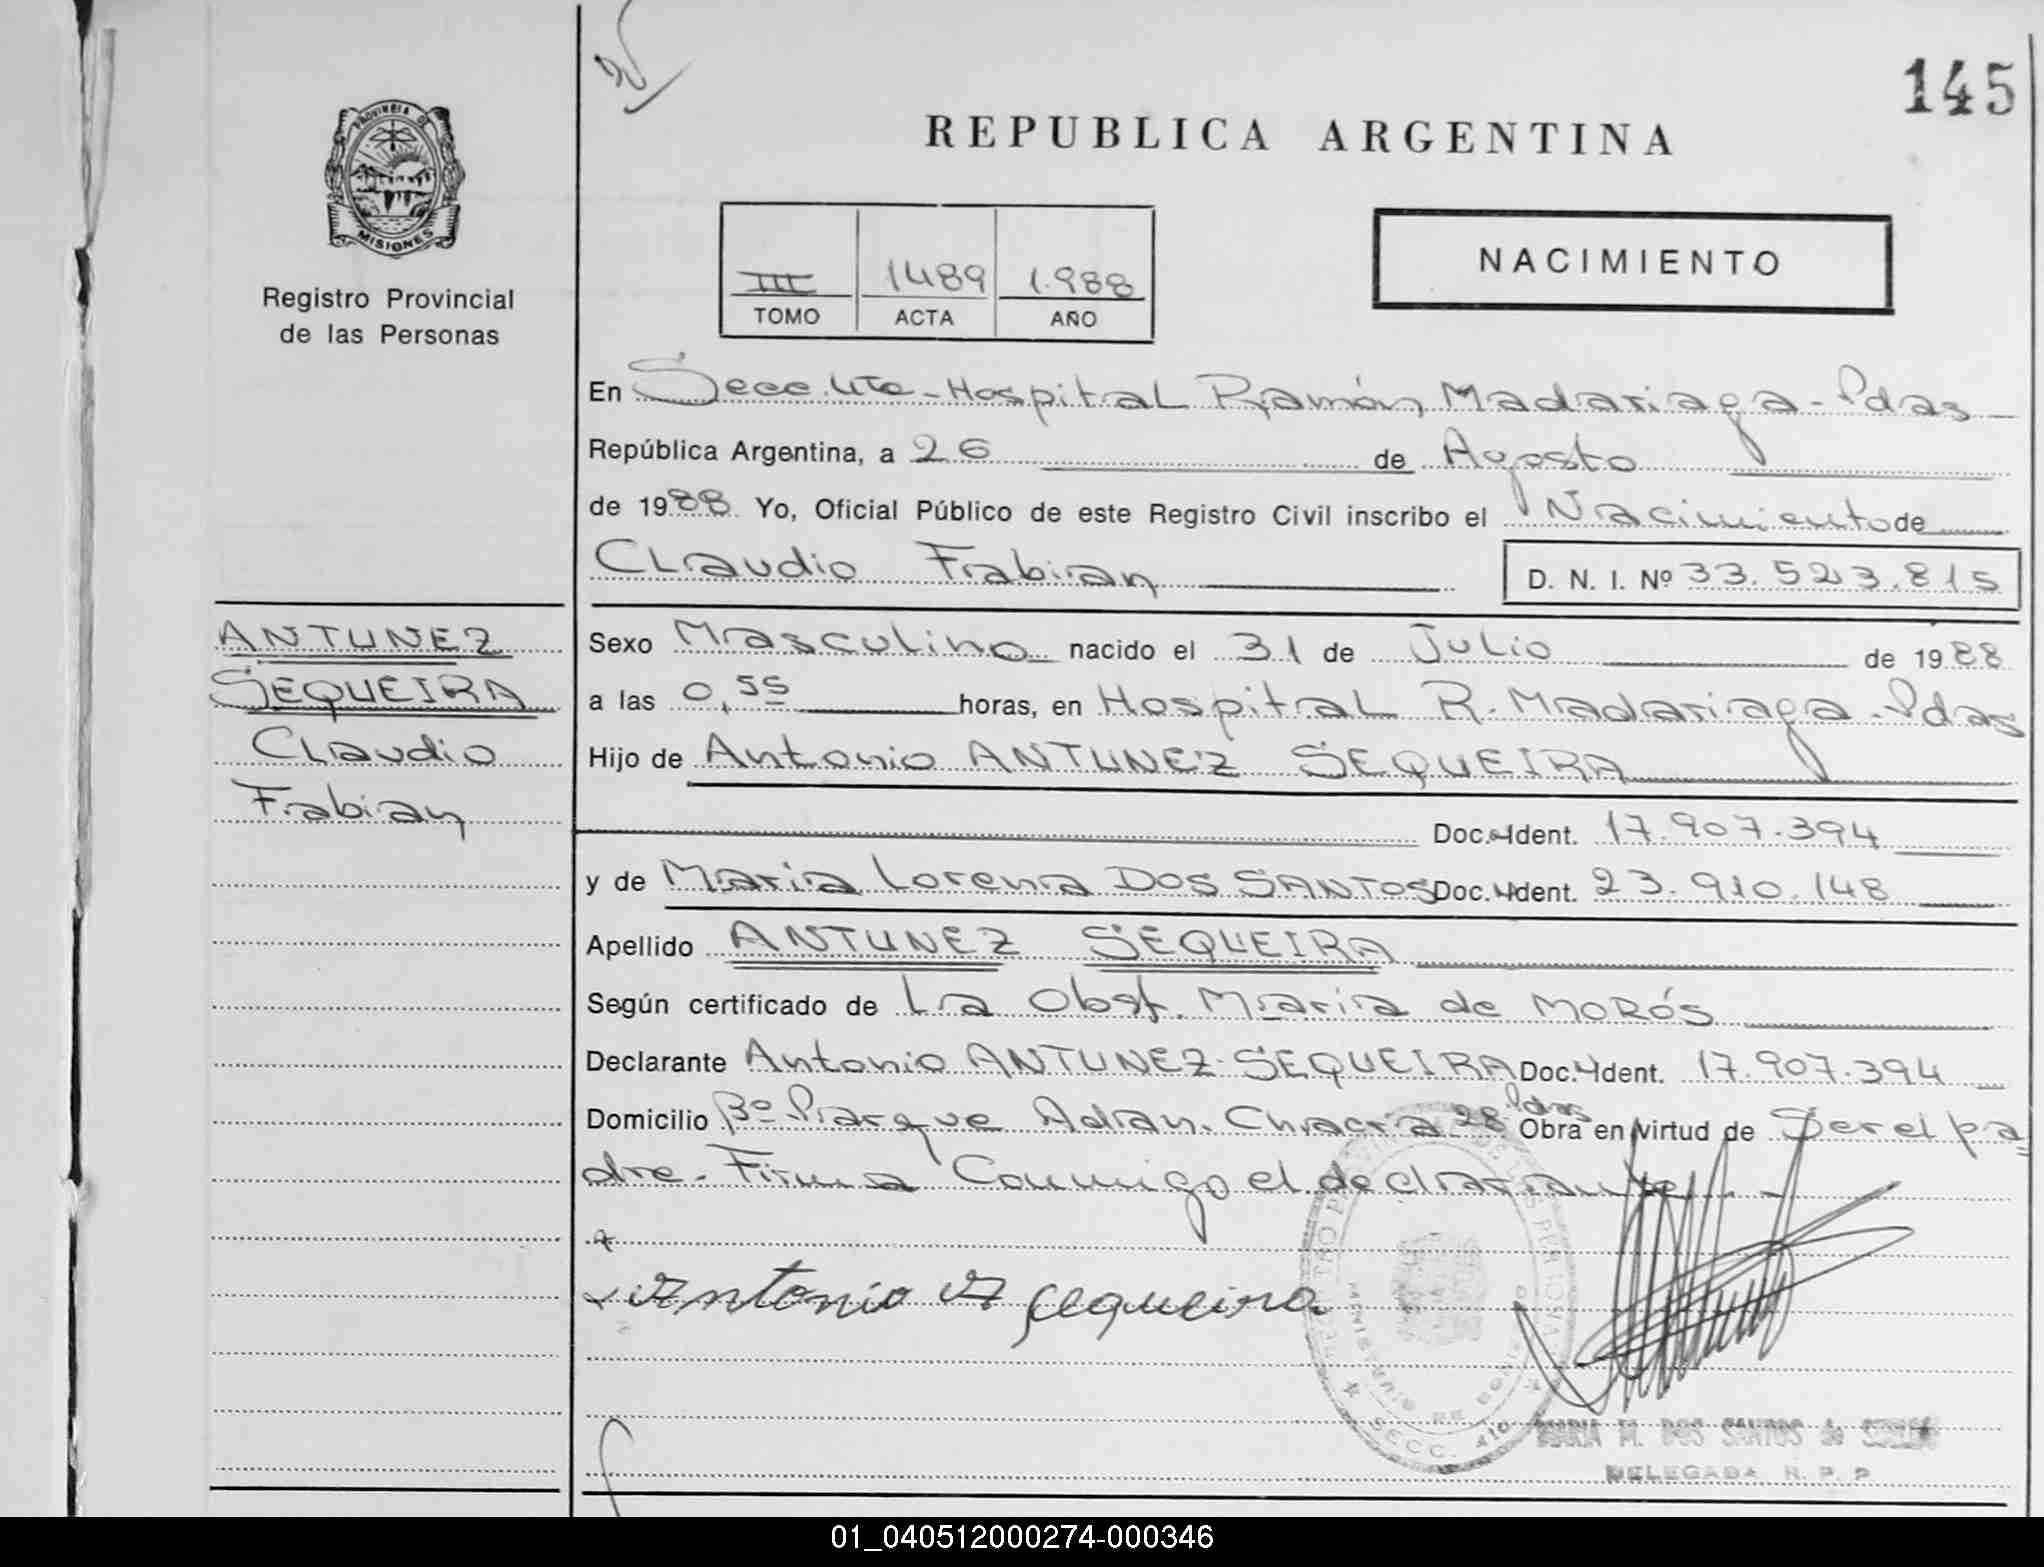 145
REPUBLICA ARGENTINA
PROVINCIA DE
MISIONES
Registro Provincial
de las Personas
III 1489 1.988
TOMO ACTA AÑO
NACIMIENTO
En Secc. 4ta - Hospital Ramón Madariaga - Pdas
República Argentina, a 26 de Agosto
de 1988 Yo, Oficial Público de este Registro Civil inscribo el Nacimiento de
Claudio Fabian
D. N. I. Nº 33.523.815
ANTUNEZ
SEQUEIRA
Claudio
Fabian
Sexo Masculino nacido el 31 de Julio de 1988
a las 0,55 horas, en Hospital R. Madariaga - Pdas
Hijo de Antonio ANTUNEZ SEQUEIRA
Doc. Ident. 17.907.394
y de Maria Lorena DOS SANTOS Doc. Ident. 23.910.148
Apellido ANTUNEZ SEQUEIRA
Según certificado de La Obst. Maria de MORÓS
Declarante Antonio ANTUNEZ SEQUEIRA Doc. Ident. 17.907.394
Domicilio Bº Parque Adan. Chacra 28 Pdas Obra en virtud de Ser el pa
dre - Firma Conmigo el declarante -
Antonio A Sequeira
SECC. 4ta
MARIA M. DOS SANTOS de
DELEGADA R. P. P.
01_040512000274-000346